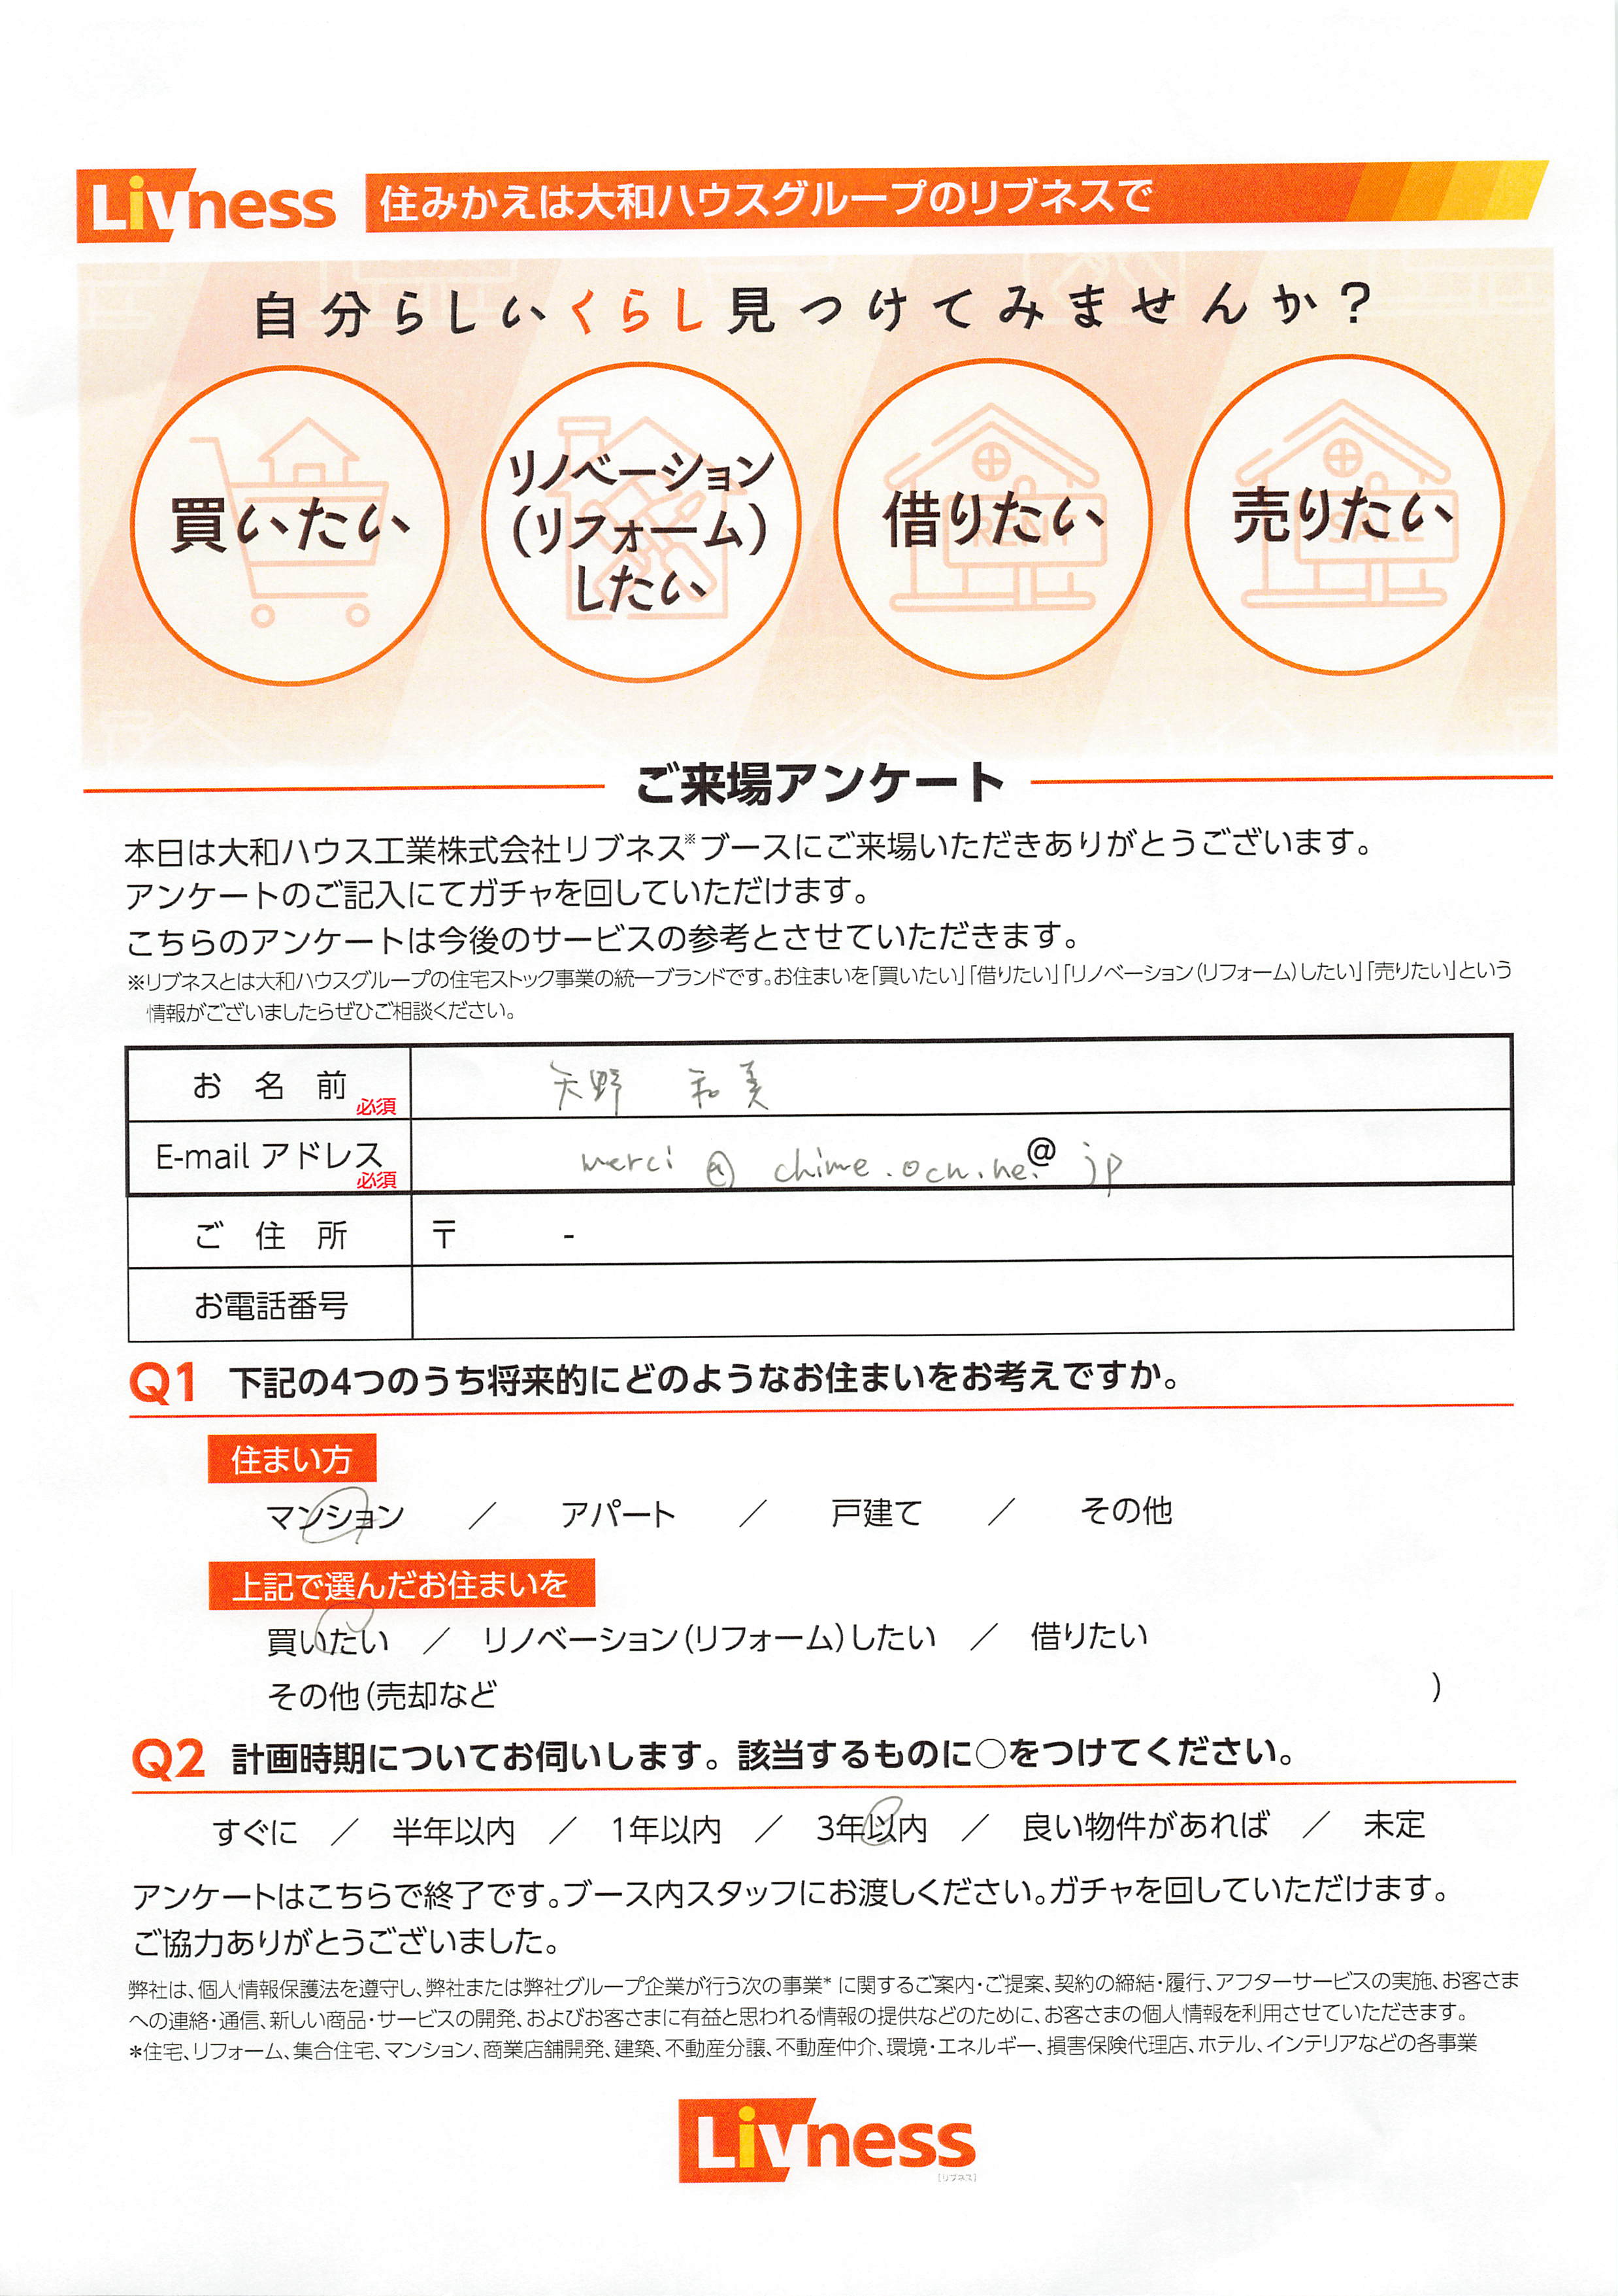 Livness 住みかえは大和ハウスグループのリブネスで
自分らしいくらし見つけてみませんか？
買いたい
リノベーション
（リフォーム）
したい
借りたい
RENT
売りたい
SALE
ご来場アンケート
本日は大和ハウス工業株式会社リブネス※ブースにご来場いただきありがとうございます。
アンケートのご記入にてガチャを回していただけます。
こちらのアンケートは今後のサービスの参考とさせていただきます。
※リブネスとは大和ハウスグループの住宅ストック事業の統一ブランドです。お住まいを「買いたい」「借りたい」「リノベーション（リフォーム）したい」「売りたい」という
情報がございましたらぜひご相談ください。
お名前 必須 矢野 和美
E-mail アドレス 必須 merci @ chime.ocn.ne. @ jp
ご住所 〒 -
お電話番号
Q1 下記の4つのうち将来的にどのようなお住まいをお考えですか。
住まい方
マンション ／ アパート ／ 戸建て ／ その他
上記で選んだお住まいを
買いたい ／ リノベーション（リフォーム）したい ／ 借りたい
その他（売却など ）
Q2 計画時期についてお伺いします。該当するものに○をつけてください。
すぐに ／ 半年以内 ／ 1年以内 ／ 3年以内 ／ 良い物件があれば ／ 未定
アンケートはこちらで終了です。ブース内スタッフにお渡しください。ガチャを回していただけます。
ご協力ありがとうございました。
弊社は、個人情報保護法を遵守し、弊社または弊社グループ企業が行う次の事業*に関するご案内・ご提案、契約の締結・履行、アフターサービスの実施、お客さま
への連絡・通信、新しい商品・サービスの開発、およびお客さまに有益と思われる情報の提供などのために、お客さまの個人情報を利用させていただきます。
*住宅、リフォーム、集合住宅、マンション、商業店舗開発、建築、不動産分譲、不動産仲介、環境・エネルギー、損害保険代理店、ホテル、インテリアなどの各事業
Livness
[リブネス]